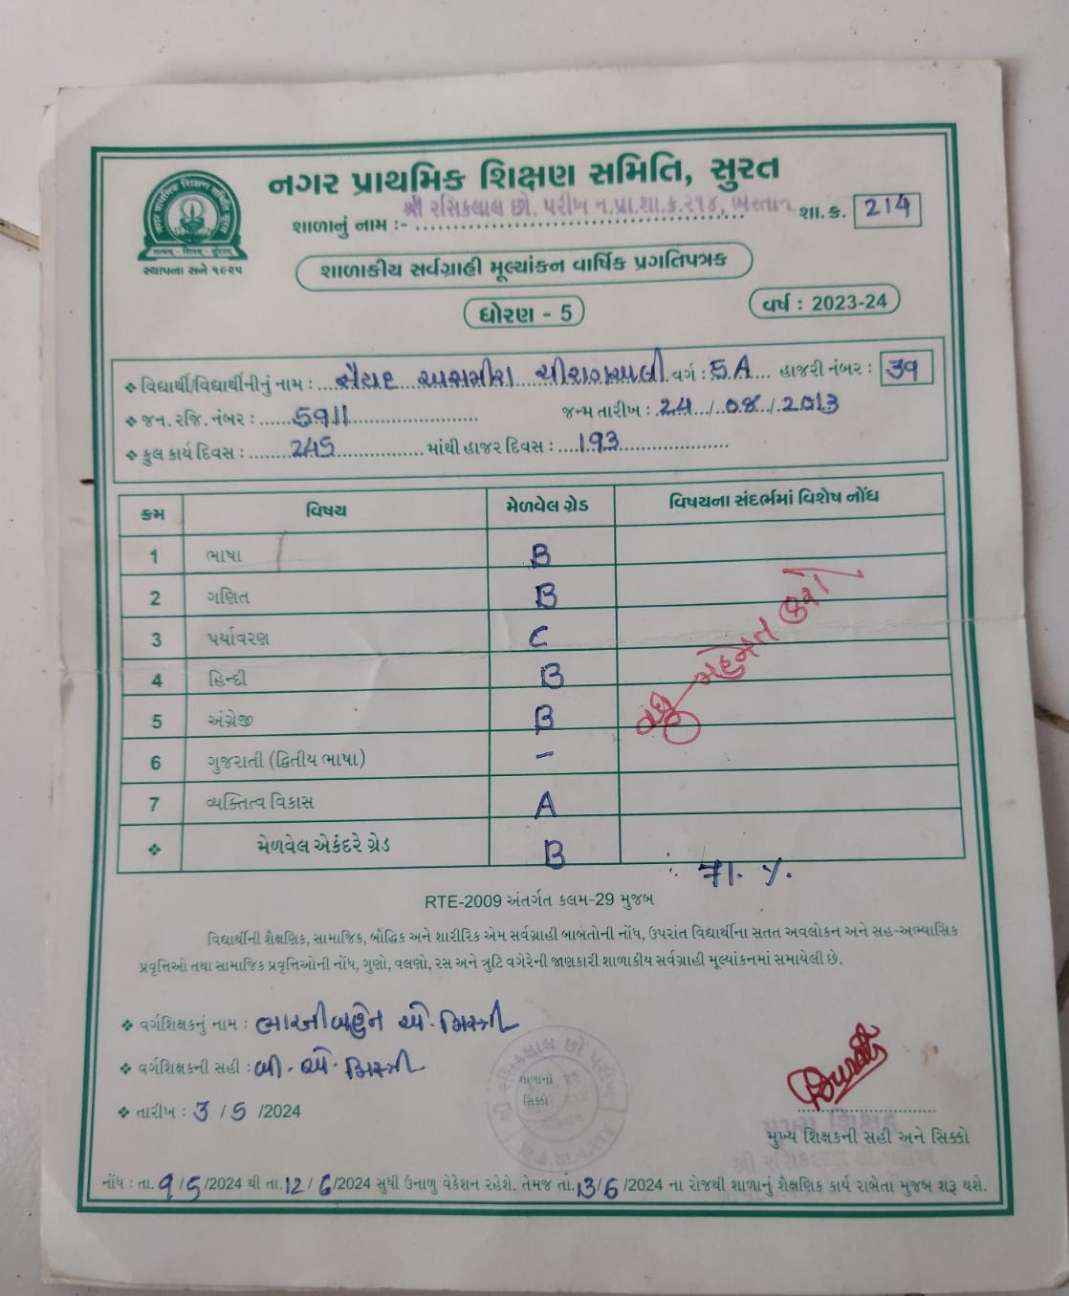 નગર પ્રાથમિક શિક્ષણ સમિતિ, સુરત
સ્થાપના સને ૧૯૨૫
શાળાનું નામ :- શ્રી રસિકલાલ છો. પરીખ ન.પ્રા.શા.ક્ર.૨૧૪, ભેસ્તાન શા.ક્ર. 214
શાળાકીય સર્વગ્રાહી મૂલ્યાંકન વાર્ષિક પ્રગતિપત્રક
ધોરણ - 5
વર્ષ : 2023-24
❖ વિદ્યાર્થી/વિદ્યાર્થીનીનું નામ : સૈયદ ચીરાગઅલી વર્ગ : 5A હાજરી નંબર : 39
❖ જન. રજિ. નંબર : 5911 જન્મ તારીખ : 24 / 08 / 2013
❖ કુલ કાર્ય દિવસ : 245 માંથી હાજર દિવસ : 193
ક્રમ વિષય મેળવેલ ગ્રેડ વિષયના સંદર્ભમાં વિશેષ નોંધ
1 ભાષા B
2 ગણિત B
3 પર્યાવરણ C
4 હિન્દી B
5 અંગ્રેજી B
6 ગુજરાતી (દ્વિતીય ભાષા) –
7 વ્યક્તિત્વ વિકાસ A
❖ મેળવેલ એકંદરે ગ્રેડ B
વધુ મહેનત કરો
71. %.
RTE-2009 અંતર્ગત કલમ-29 મુજબ
વિદ્યાર્થીની શૈક્ષણિક, સામાજિક, બૌદ્ધિક અને શારીરિક એમ સર્વગ્રાહી બાબતોની નોંધ, ઉપરાંત વિદ્યાર્થીના સતત અવલોકન અને સહ-અભ્યાસિક
પ્રવૃત્તિઓ તથા સામાજિક પ્રવૃત્તિઓની નોંધ, ગુણો, વલણો, રસ અને ત્રુટિ વગેરેની જાણકારી શાળાકીય સર્વગ્રાહી મૂલ્યાંકનમાં સમાયેલી છે.
❖ વર્ગશિક્ષકનું નામ : ભારતીબહેન એ. મિસ્ત્રી
❖ વર્ગશિક્ષકની સહી : બી. એ. મિસ્ત્રી
શાળાનો
સિક્કો
❖ તારીખ : 3 / 5 /2024
મુખ્ય શિક્ષકની સહી અને સિક્કો
નોંધ : તા. 9/5/2024 થી તા. 12/6/2024 સુધી ઉનાળુ વેકેશન રહેશે. તેમજ તા. 13/6/2024 ના રોજથી શાળાનું શૈક્ષણિક કાર્ય રાબેતા મુજબ શરૂ થશે.